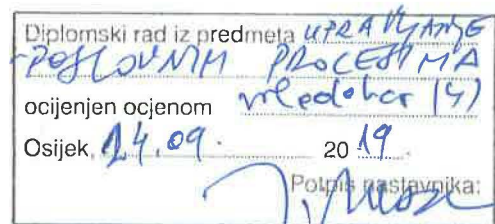 Diplomski rad iz predmeta UPRAVLJANJE
POSLOVNIM PROCESIMA
ocijenjen ocjenom vrlo dobar (4)
Osijek, 24. 09. 20 19.
Potpis nastavnika: